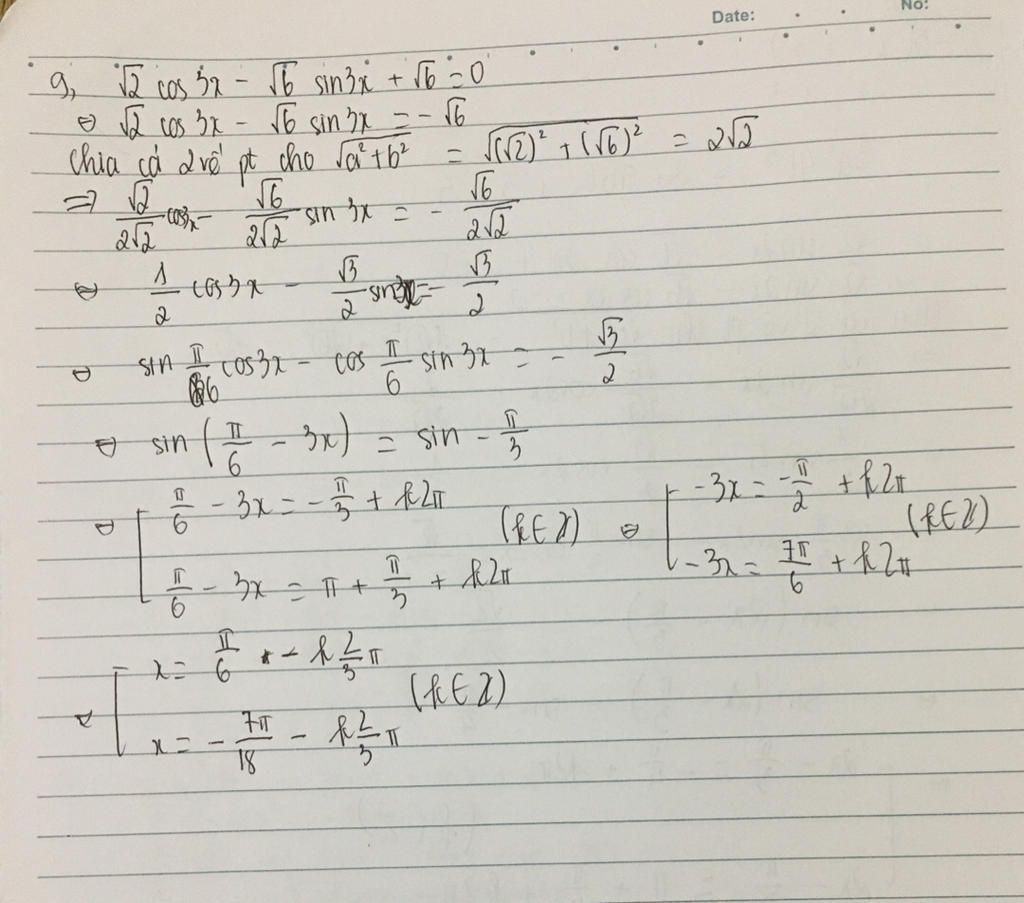 Date: No:
g, √2 cos 3x − √6 sin3x + √6 = 0
⇔ √2 cos 3x − √6 sin 3x = − √6
Chia cả 2 vế pt cho √(a² + b²) = √((√2)² + (√6)²) = 2√2
⇒ √2/(2√2) cos3x − √6/(2√2) sin 3x = − √6/(2√2)
⇔ 1/2 cos 3x − √3/2 sin3x = − √3/2
⇔ sin π/6 cos3x − cos π/6 sin 3x = − √3/2
⇔ sin (π/6 − 3x) = sin − π/3
⇔ [ π/6 − 3x = − π/3 + k2π ; π/6 − 3x = π + π/3 + k2π (k ∈ Z) ⇔ [ −3x = − π/2 + k2π ; −3x = 7π/6 + k2π (k ∈ Z)
⇔ [ x = π/6 − k 2/3 π ; x = − 7π/18 − k 2/3 π (k ∈ Z)